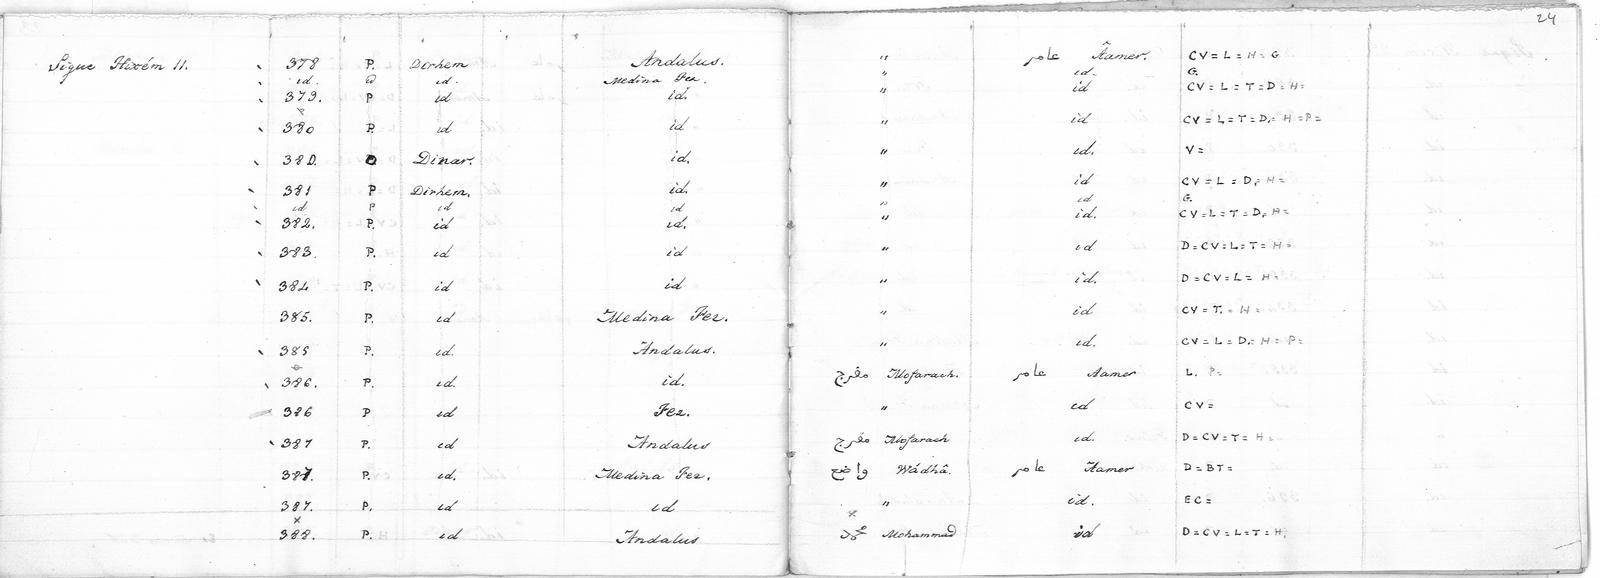 24
Sigue Hixém II. 378 P. Dirhem Andalus. " عامر Âamer. CV = L = H = G
id. id. Medina Fez. " id. G.
379. P id id. " id CV = L = T = D = H =
380 P. id id " id. CV = L = T = D. = H = P =
380. O Dinar. id. " id. V =
381 P Dirhem. id. " id CV = L = D. = H =
id P id id " id G.
382. P. id id. " id. CV = L = T = D. = H =
383. P. id id " id D = CV = L = T = H =
384 P. id id " id. D = CV = L = H =
385. P. id Medina Fez. " id CV = T. = H =
385 P. id. Andalus. " id. CV = L = D. = H = P =
386. P. id. id. مفرج Mofarach. عامر Aamer L. P =
386 P id Fez. " id CV =
387 P. id Andalus مفرج Mofarach id. D = CV = T = H =
387. P. id. Medina Fez. واضح Wádhâ. عامر Aamer D = BT =
387. P. id id " id. EC =
388. P. id Andalus محمد Mohammad id D = CV = L = T = H.